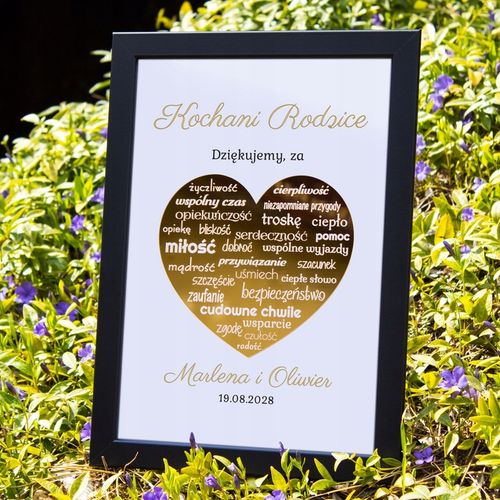 Kochani Rodzice
Dziękujemy, za
życzliwość cierpliwość
wspólny czas niezapomniane przygody
opiekuńczość troskę ciepło
opiekę bliskość serdeczność pomoc
miłość dobroć wspólne wyjazdy
przywiązanie
mądrość uśmiech szacunek
szczęście ciepłe słowo
zaufanie bezpieczeństwo
cudowne chwile
zgodę wsparcie
czułość
radość
Marlena i Oliwier
19.08.2028